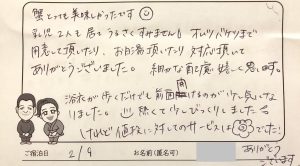 蟹とっても美味しかったです
乳児2人も居るうるさくすみません! オムツバケツまで
用意して頂いたり、お白湯頂いたり 対応頂いて
ありがとうございました。 細かな配慮嬉しく思います。
浴衣が歩くだけでも前開けるのが少し気になり
ました。 熱くて少しびっくりしました
けれど 値段に対してのサービスは でした!
ありがとう
ございます
ご宿泊日 2/9 お名前(匿名可)